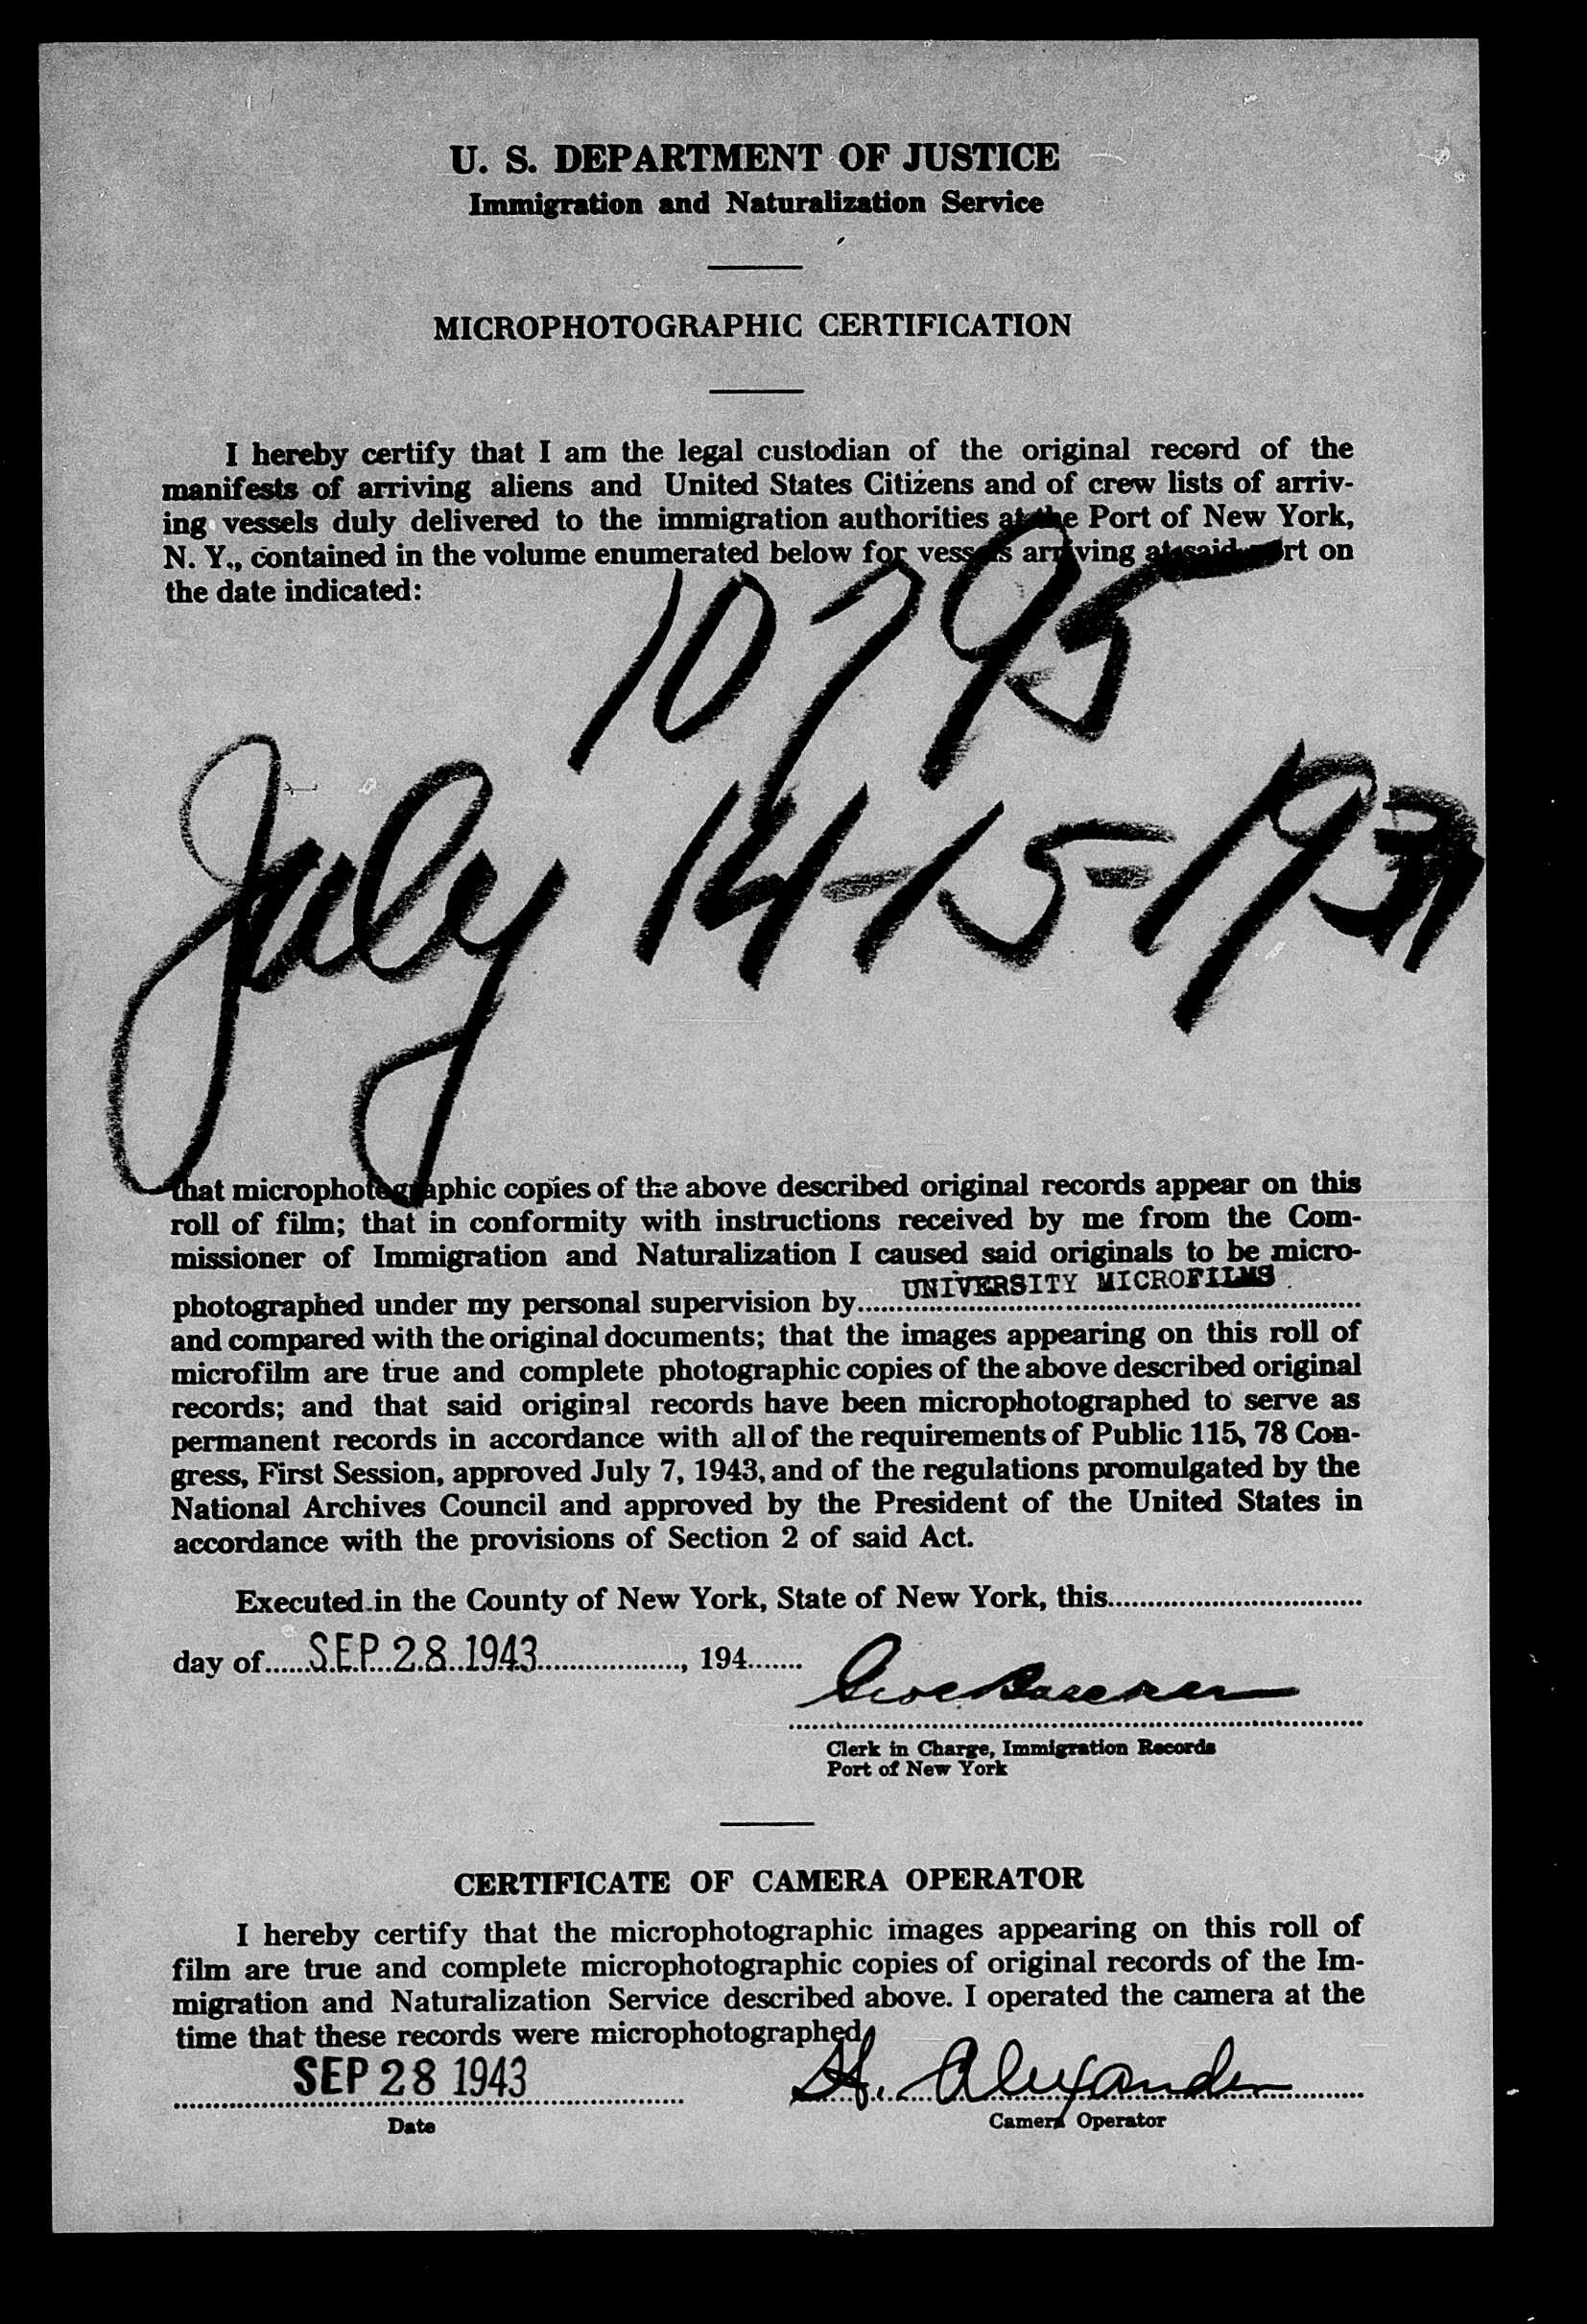 U. S. DEPARTMENT OF JUSTICE
Immigration and Naturalization Service
MICROPHOTOGRAPHIC CERTIFICATION
I hereby certify that I am the legal custodian of the original record of the
manifests of arriving aliens and United States Citizens and of crew lists of arriv-
ing vessels duly delivered to the immigration authorities at the Port of New York,
N. Y., contained in the volume enumerated below for vessels arriving at said port on
the date indicated:
10795
July 14-15-1937
that microphotographic copies of the above described original records appear on this
roll of film; that in conformity with instructions received by me from the Com-
missioner of Immigration and Naturalization I caused said originals to be micro-
photographed under my personal supervision by UNIVERSITY MICROFILMS
and compared with the original documents; that the images appearing on this roll of
microfilm are true and complete photographic copies of the above described original
records; and that said original records have been microphotographed to serve as
permanent records in accordance with all of the requirements of Public 115, 78 Con-
gress, First Session, approved July 7, 1943, and of the regulations promulgated by the
National Archives Council and approved by the President of the United States in
accordance with the provisions of Section 2 of said Act.
Executed in the County of New York, State of New York, this
day of SEP 28 1943, 194
Clerk in Charge, Immigration Records
Port of New York
CERTIFICATE OF CAMERA OPERATOR
I hereby certify that the microphotographic images appearing on this roll of
film are true and complete microphotographic copies of original records of the Im-
migration and Naturalization Service described above. I operated the camera at the
time that these records were microphotographed.
SEP 28 1943 H. Alexander
Date Camera Operator